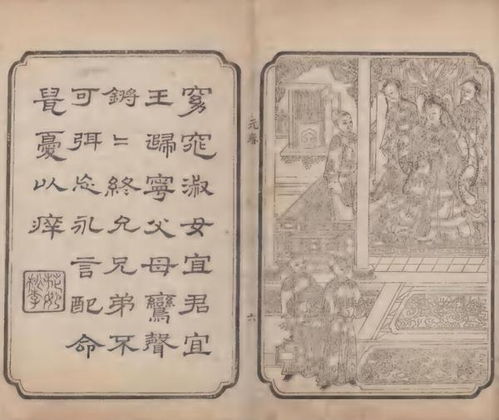 元春
六
窈窕淑女宜君宜
王歸寧父母鸞聲
鏘〻終允兄弟不
可弭忘永言配命
鼠憂以痒
花如
桃李